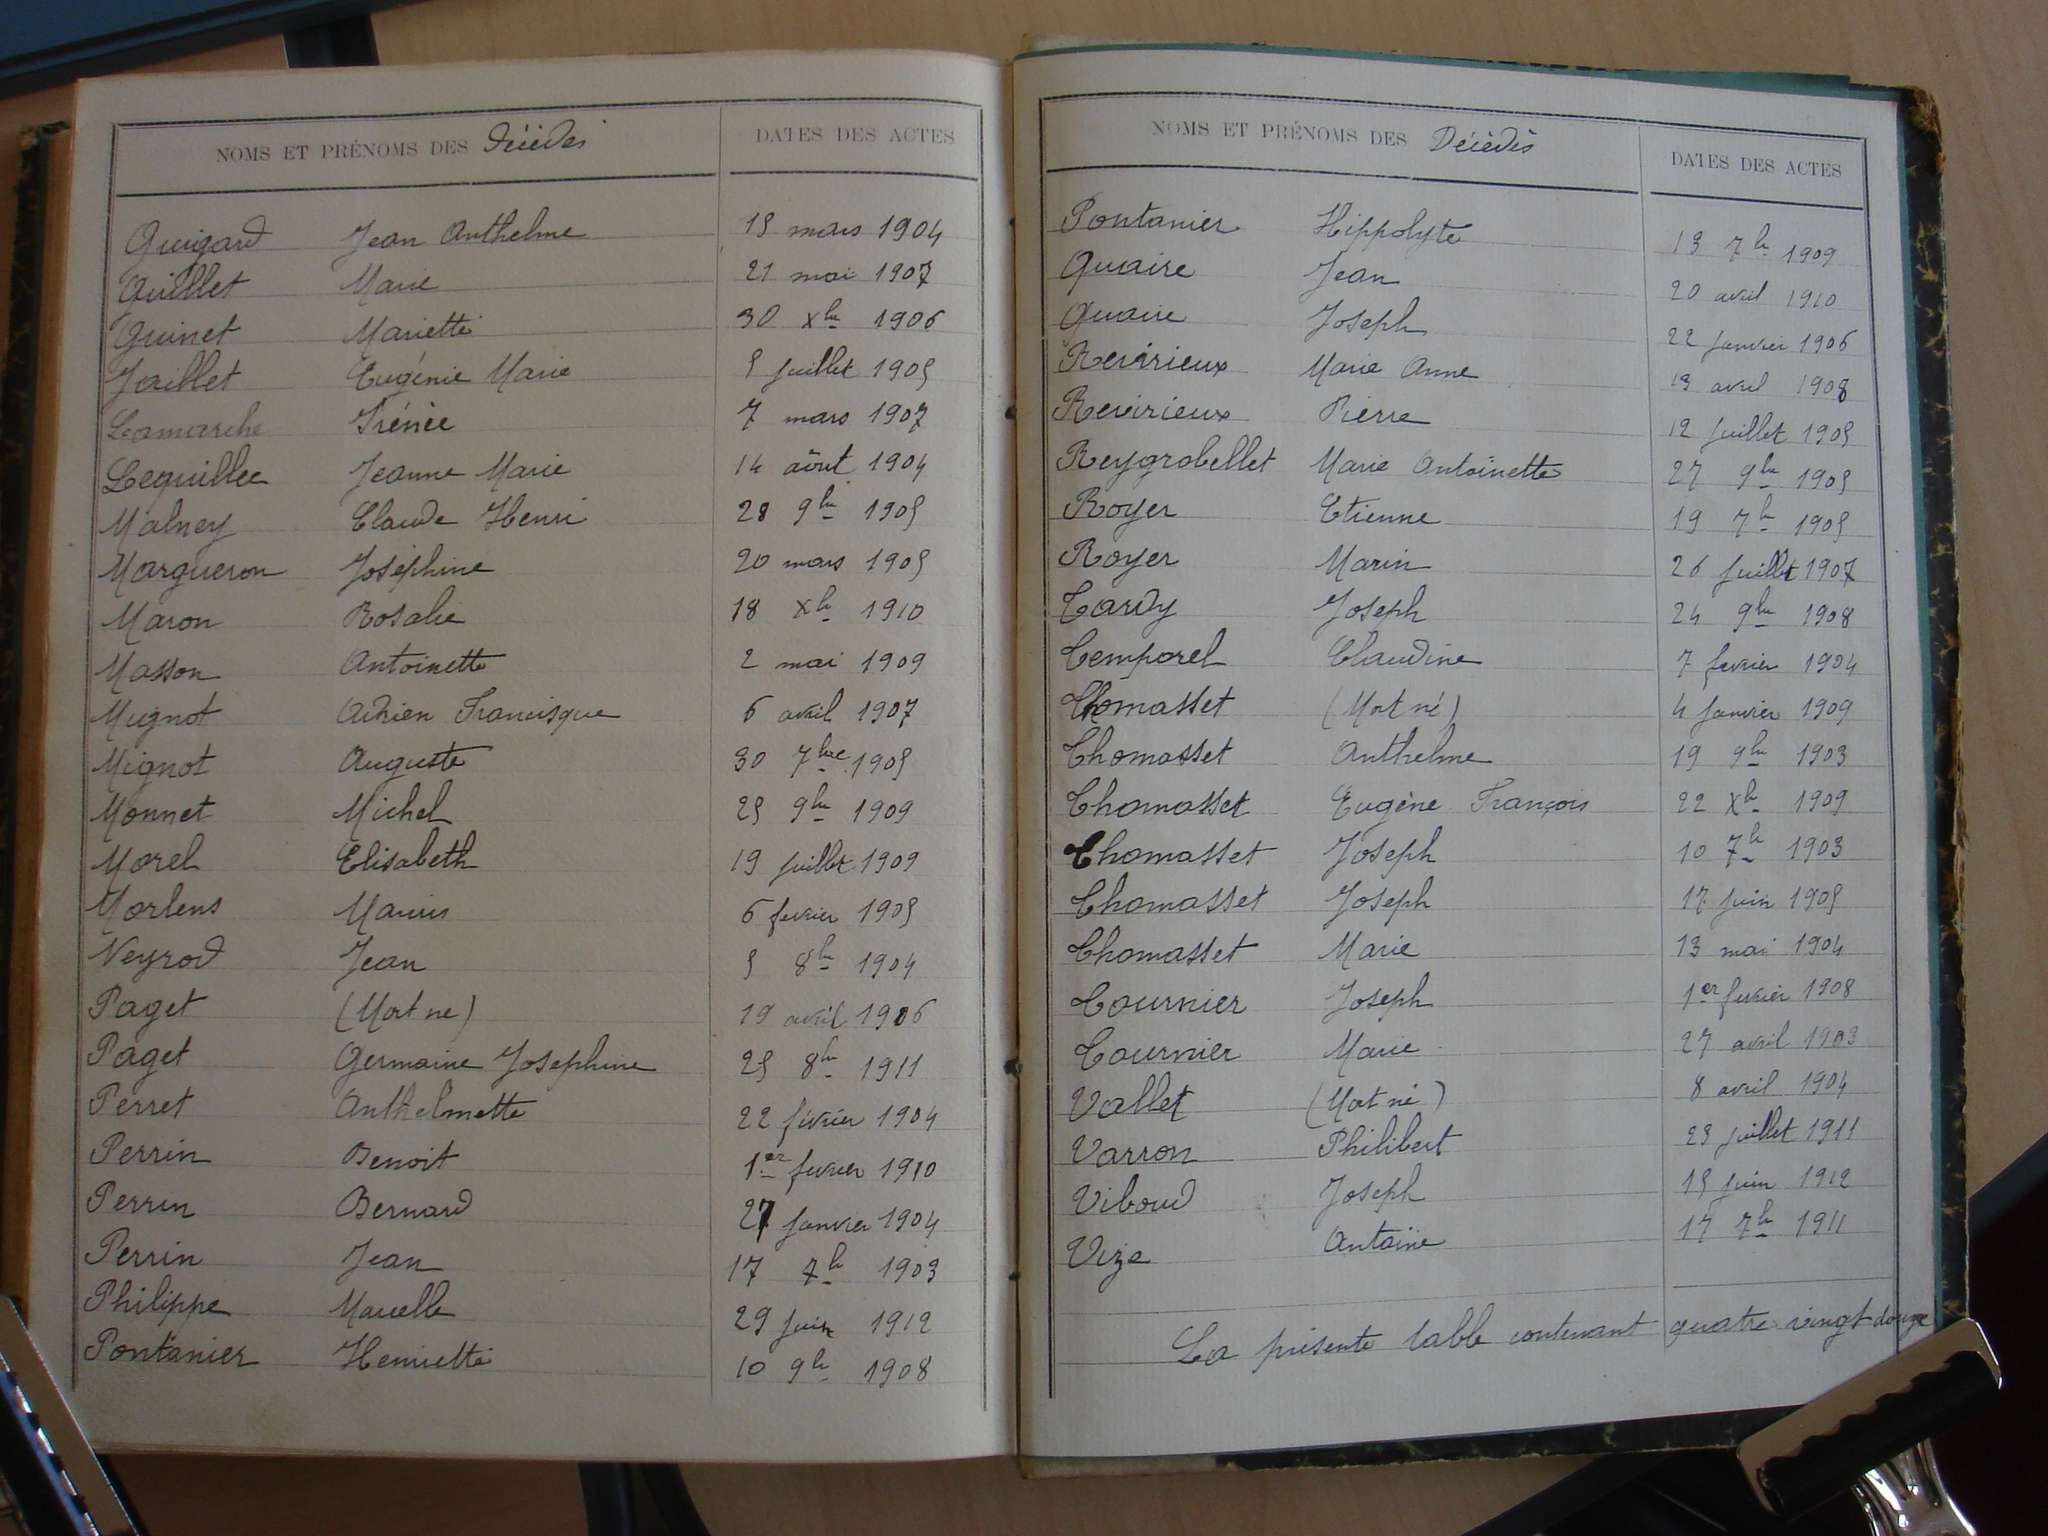 NOMS ET PRÉNOMS DES Décédés DATES DES ACTES
Guigard Jean Anthelme 15 mars 1904
Guillet Marie 21 mai 1907
Guinet Mariette 30 Xbre 1906
Jaillet Eugénie Marie 5 juillet 1905
Lamarche Irénée 7 mars 1907
Lequillec Jeanne Marie 14 août 1904
Malney Claude Henri 28 9bre 1905
Margueron Joséphine 20 mars 1905
Maron Rosalie 18 Xbre 1910
Masson Antoinette 2 mai 1909
Mignot Adrien Francisque 6 avril 1907
Mignot Auguste 30 7bre 1905
Monnet Michel 25 9bre 1909
Morel Elisabeth 19 juillet 1909
Morlens Marius 6 fevrier 1905
Neyrod Jean 5 8bre 1904
Paget (Mort né) 19 avril 1906
Paget Germaine Josephine 25 8bre 1911
Perret Anthelmette 22 février 1904
Perrin Benoit 1er fevrier 1910
Perrin Bernard 27 janvier 1904
Perrin Jean 17 7bre 1903
Philippe Marcelle 29 juin 1912
Pontanier Henriette 10 9bre 1908
NOMS ET PRÉNOMS DES Décédés DATES DES ACTES
Pontanier Hippolyte 13 7bre 1909
Quaire Jean 20 avril 1910
Quaire Joseph 22 janvier 1906
Revirieux Marie Anne 13 avril 1908
Revirieux Pierre 12 juillet 1905
Reygrobellet Marie Antoinette 27 9bre 1905
Royer Etienne 19 7bre 1905
Royer Marin 26 juillet 1907
Tardy Joseph 24 9bre 1908
Temporel Claudine 7 fevrier 1904
Thomasset (Mort né) 4 janvier 1909
Thomasset Anthelme 19 9bre 1903
Thomasset Eugène François 22 Xbre 1909
Thomasset Joseph 10 7bre 1903
Thomasset Joseph 17 juin 1905
Thomasset Marie 13 mai 1904
Tournier Joseph 1er fevrier 1908
Tournier Marie 27 avril 1903
Vallet (Mort né) 8 avril 1904
Varron Philibert 23 juillet 1911
Viboud Joseph 15 juin 1912
Vize Antoine 17 7bre 1911
La présente table contenant quatre vingt douze